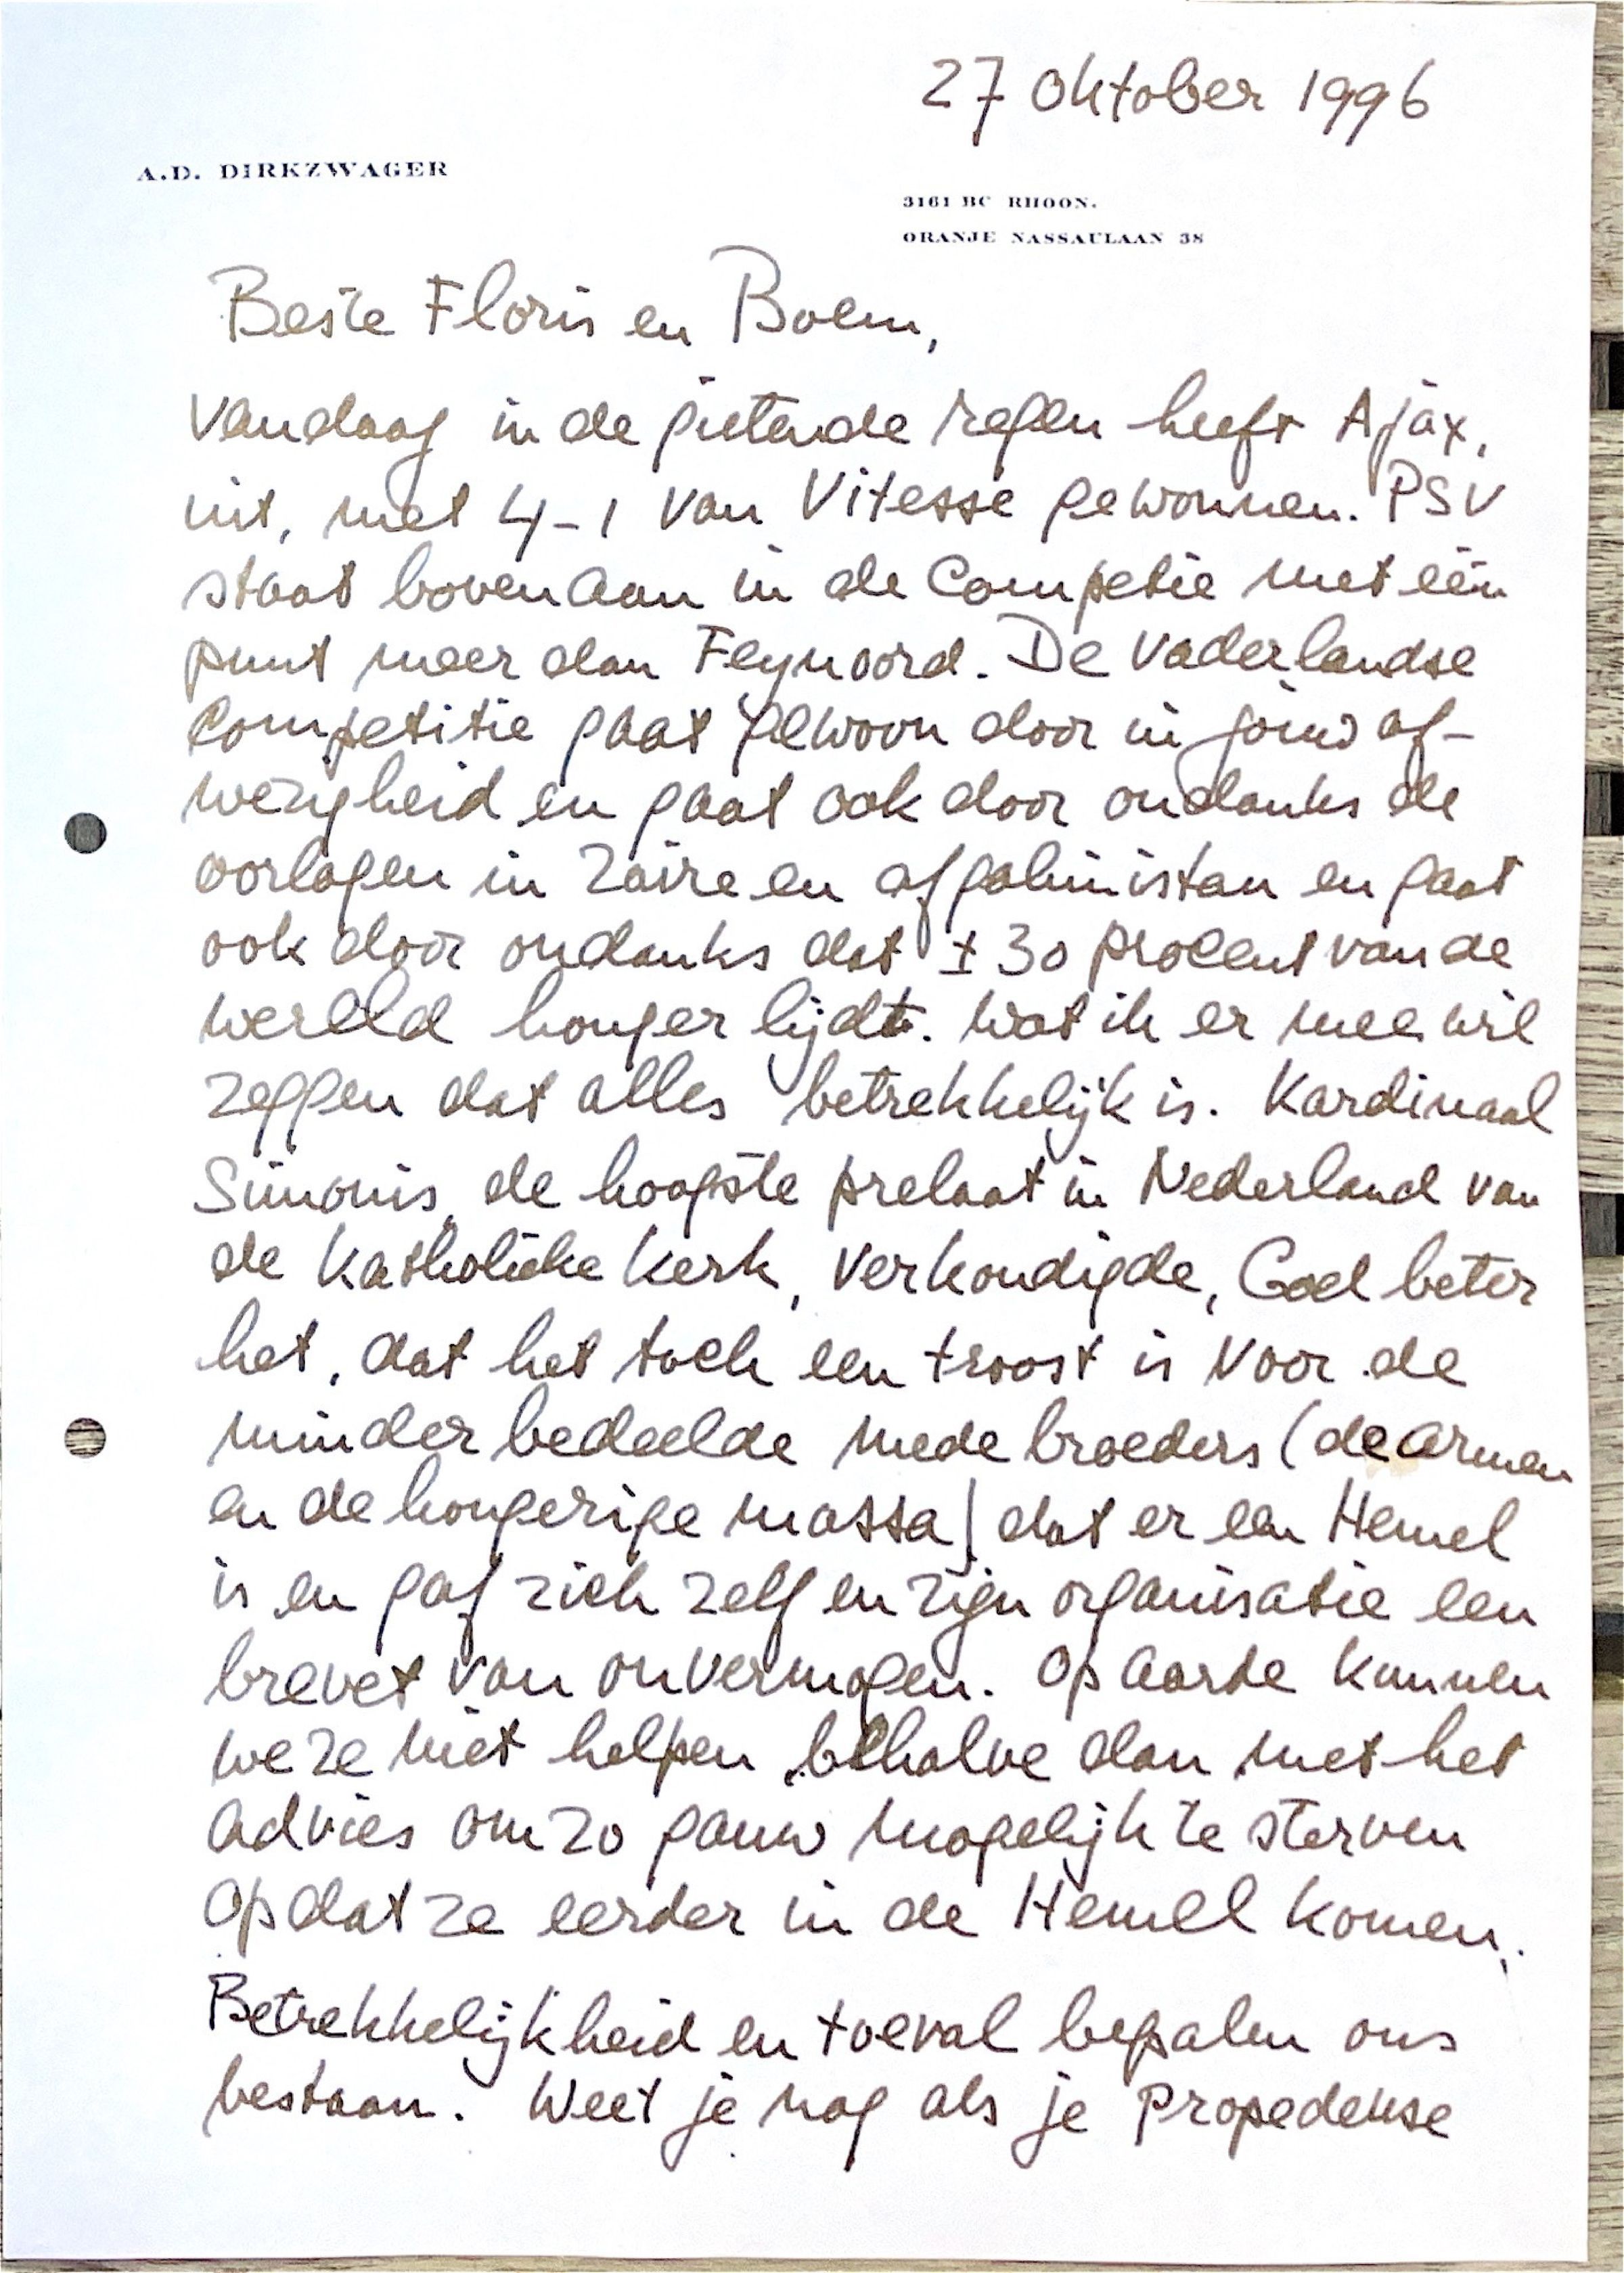 27 Oktober 1996
A.D. DIRKZWAGER
3161 BC RHOON.
ORANJE NASSAULAAN 38
Beste Floris en Boem,
Vandaag in de gietende regen heeft Ajax,
uit, met 4-1 van Vitesse gewonnen. PSV
staat bovenaan in de Competie met één
punt meer dan Feynoord. De vaderlandse
Competitie gaat gewoon door in jouw af-
wezigheid en gaat ook door ondanks de
oorlogen in Zaïre en afgahnistan en gaat
ook door ondanks dat ± 30 procent van de
wereld honger lijdt. Wat ik er mee wil
zeggen dat alles betrekkelijk is. Kardinaal
Simonis, de hoogste prelaat in Nederland van
de Katholieke Kerk, verkondigde, God beter
het, dat het toch een troost is voor de
minder bedeelde mede broeders (de armen
en de hongerige massa) dat er een Hemel
is en gaf zich zelf en zijn organisatie een
brevet van onvermogen. Op aarde kunnen
we ze niet helpen, behalve dan met het
advies om zo gauw mogelijk te sterven
opdat ze eerder in de Hemel komen.
Betrekkelijkheid en toeval bepalen ons
bestaan. Weet je nog als je Propedeuse